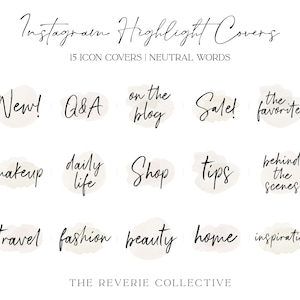 Instagram Highlight Covers
15 ICON COVERS | NEUTRAL WORDS
New!
Q&A
on the
blog
Sale!
the
favorites
makeup
daily
life
Shop
tips
behind
the
scenes
travel
fashion
beauty
home
inspiration
THE REVERIE COLLECTIVE